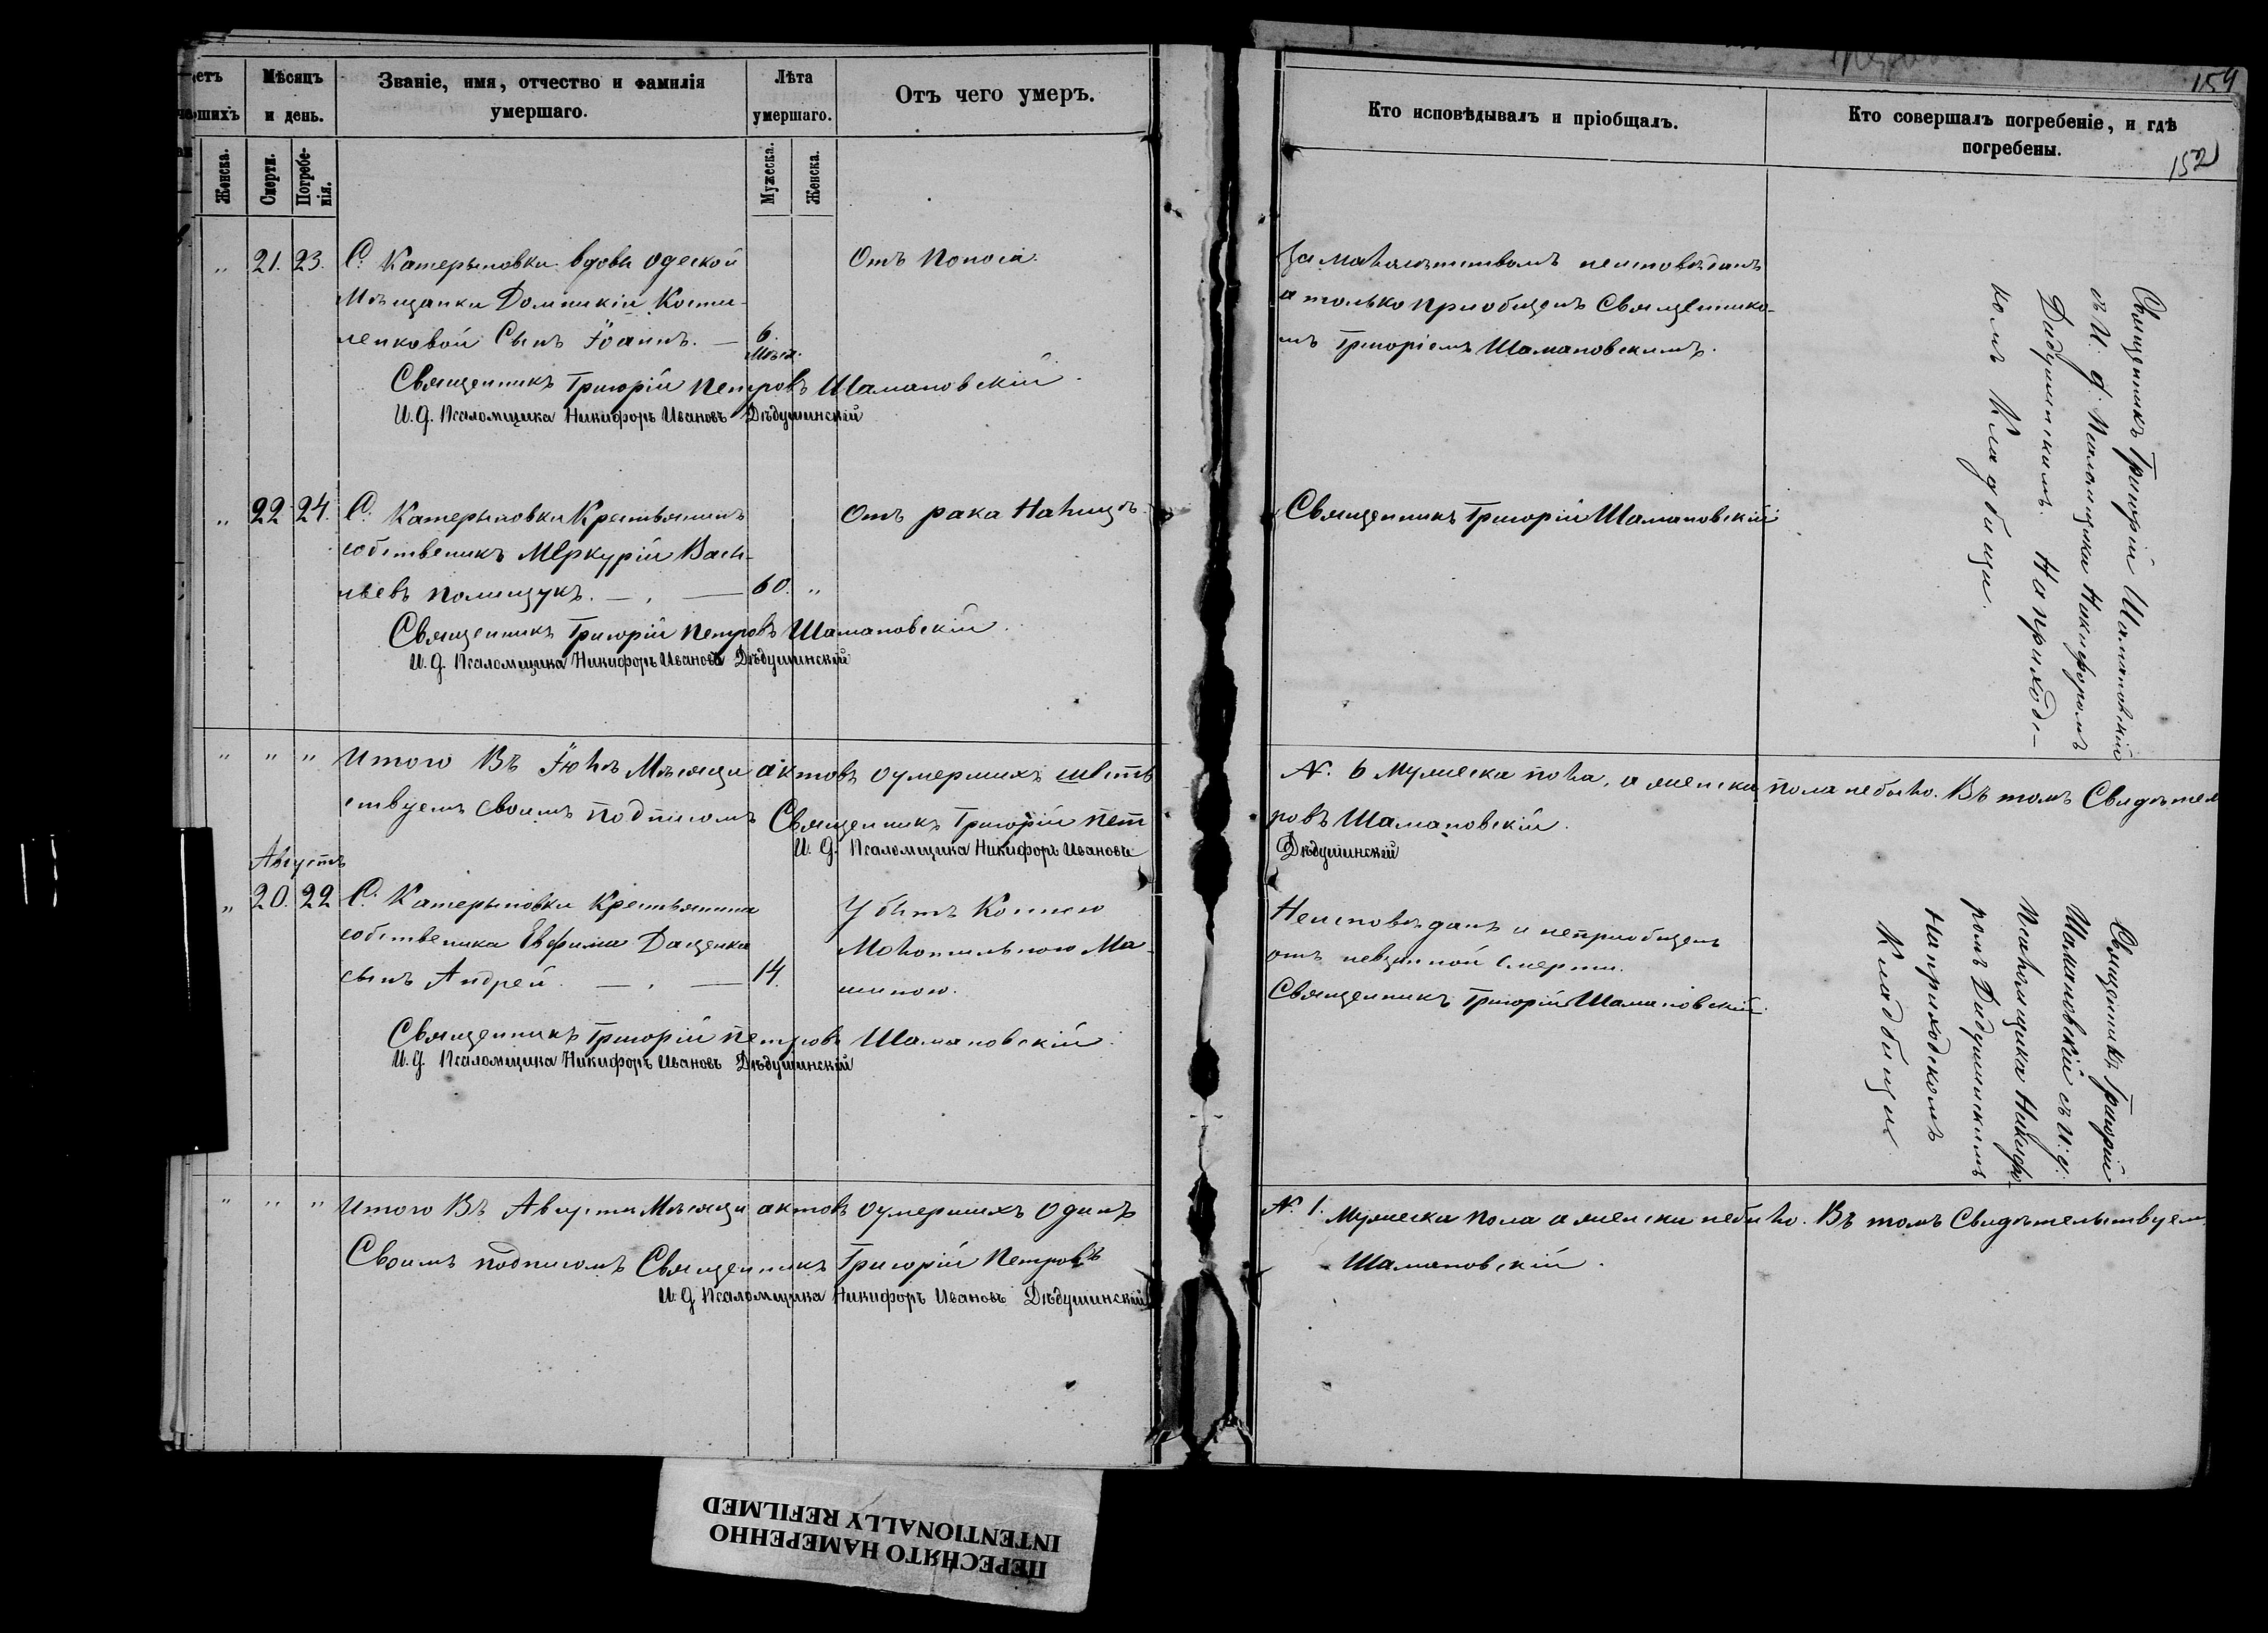 154
Мѣсяцъ и день.
Званіе, имя, отчество и фамилія умершаго.
Лѣта умершаго.
Отъ чего умеръ.
Кто исповѣдывалъ и пріобщалъ.
Кто совершалъ погребеніе, и гдѣ погребены.
152
Женска.
Смерти.
Погребенія.
Мужеска.
Женска.
„ 21. 23. С. Катерыновки вдовы одеской
Мѣщанки Домникіи Кости-
ленковой Сынъ Іоаннъ. — 6. мѣся.
Отъ Поноса.
За малолѣтствомъ неисповѣданъ
а только пріобщенъ Священнико-
мъ Григоріемъ Шамановскимъ.
Священникъ Григорій Петровъ Шамановскій.
И. д. Псаломщика Никифоръ Ивановъ Дѣдушинскій
Священникъ Григорій Шамановскій
съ И. д. Псаломщика Никифоромъ
Дидушинскимъ. На приход-
комъ Кладбищи.
„ 22 24. С. Катерыновки Крестьянинъ
собственикъ Меркурій Васи-
льевъ Полищукъ. — . — 60. „
Отъ рака На лицѣ.
Священникъ Григорій Шамановскій
Священникъ Григорій Петровъ Шамановскій.
И. д. Псаломщика Никифоръ Ивановъ Дѣдушинскій
„ „ „ Итого Въ Іюлѣ Мѣсяци актовъ оумершихъ шесть № 6 Мужеска пола, а женска пола небыло. Въ томъ Свидѣтел
ствуемъ своимъ подписомъ Священникъ Григорій Пет
ровъ Шамановскій.
И. д. Псаломщика Никифоръ Ивановъ
Дѣдушинскій
Августъ
„ 20. 22 С. Катерыновки Крестьянина
собственика Евфима Даценка
сынъ Андрей. — . — 14.
Убитъ Конною
Молотильною Ма-
шиною.
Неисповѣданъ и непріобщенъ
отъ невзапной смерти.
Священникъ Григорій Шамановскій.
Священникъ Григорій Петровъ Шамановскій.
И. д. Псаломщика Никифоръ Ивановъ Дѣдушинскій
Священникъ Григорій
Шамановскій съ И. д.
Псаломщика Никифо-
ромъ Дидушинскимъ
На приходскомъ
Кладбищи
„ „ „ Итого Въ Августи Мѣсяци актовъ оумершихъ Одинъ № 1. Мужеска пола а женска небыло. Въ томъ Свидѣтельствуем
Своимъ подписомъ Священникъ Григорій Петровъ
Шамановскій.
И. д. Псаломщика Никифоръ Ивановъ Дѣдушинскій
ПЕРЕСНЯТО НАМЕРЕННО
INTENTIONALLY REFILMED